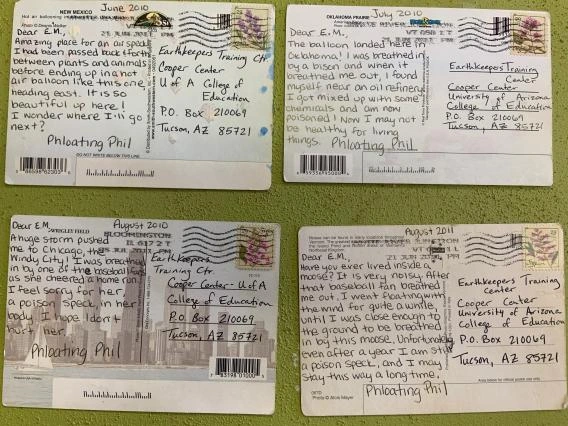 June 2010
NEW MEXICO
Dear E.M.,
Amazing place for an air speck.
I had been passed back & forth
between plants and animals
before ending up in a hot
air balloon like this one,
heading east. It is so
beautiful up here!
I wonder where I'll go
next?
Phloating Phil
Earthkeepers Training Ctr
Cooper Center
U of A College of
Education
P.O. Box 210069
Tucson, AZ 85721
DO NOT WRITE BELOW THIS LINE
July 2010
OKLAHOMA PRAIRIE
Dear E.M.,
The balloon landed here in
Oklahoma! I was breathed in
by a bison and when it
breathed me out, I found
myself near an oil refinery.
I got mixed up with some
chemicals and am now
poisoned! Now I may not
be healthy for living
things. Phloating Phil
Earthkeepers Training
Center
Cooper Center
University of Arizona
College of Education
P.O. Box 210069
Tucson, AZ 85721
August 2010
WRIGLEY FIELD
BLOOMINGTON
IL 61727
Dear E.M.
A huge storm pushed
me to Chicago, the
Windy City! I was breathed
in by one of the baseball fans
as she cheered a home run.
I feel sorry for her,
a poison speck, in her
body. I hope I don't
hurt her.
Phloating Phil
Earthkeepers
Training Ctr.
Cooper Center - U of A
College of Education
P.O. Box 210069
Tucson, AZ 85721
August 2011
Dear E.M.,
Have you ever lived inside a
moose? It is very noisy. After
that baseball fan breathed
me out, I went floating with
the wind for quite a while,
until I was close enough to
the ground to be breathed
in by this moose. Unfortunately,
even after a year I am still
a poison speck, and I may
stay this way a long time.
Phloating Phil
Earthkeepers Training
Center
Cooper Center
University of Arizona
College of Education
P.O. Box 210069
Tucson, AZ 85721
Photo © Alois Mayer